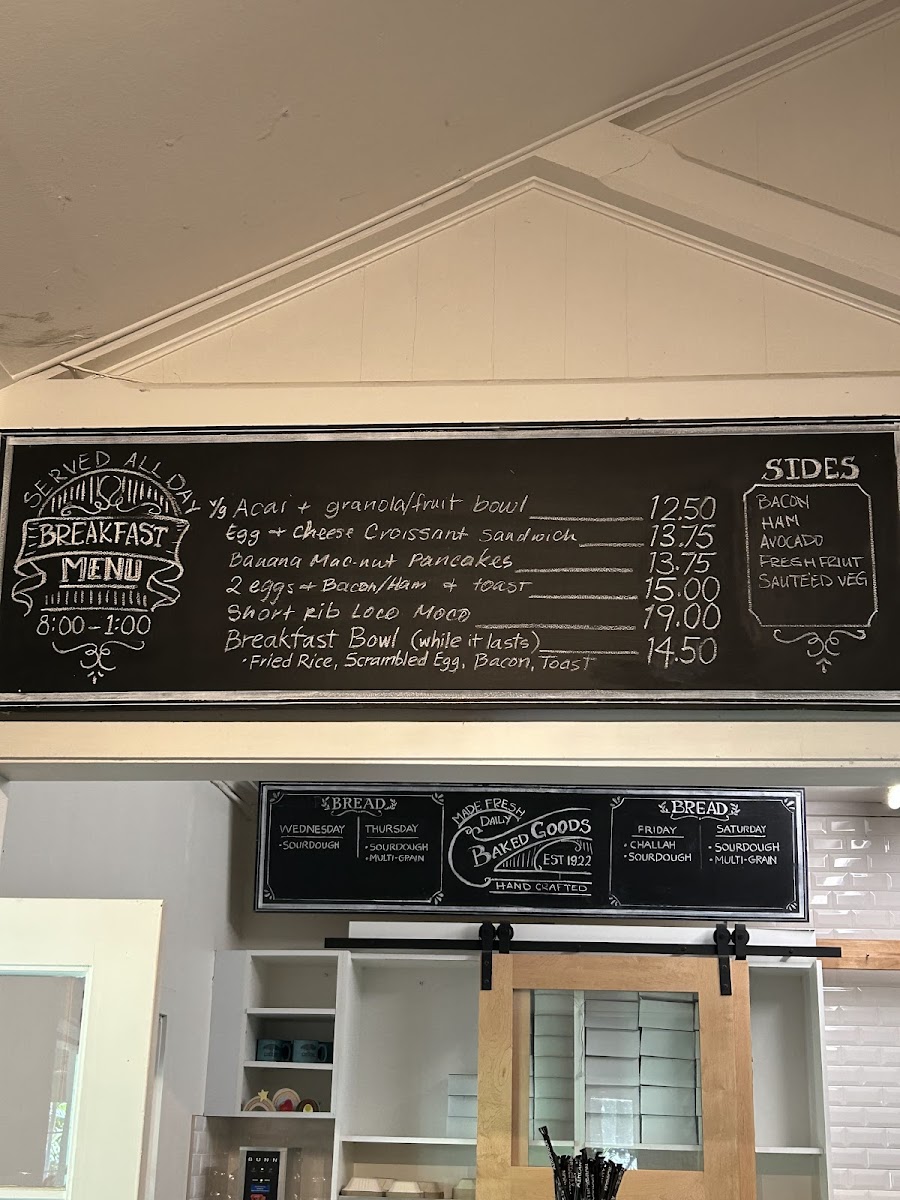 SERVED ALL DAY
BREAKFAST
MENU
8:00-1:00
V/g Acai + granola/fruit bowl 12.50
Egg + Cheese Croissant Sandwich 13.75
Banana Mac-nut Pancakes 13.75
2 eggs + Bacon/Ham + toast 15.00
Short Rib Loco Moco 19.00
Breakfast Bowl (while it lasts) 14.50
·Fried Rice, Scrambled Egg, Bacon, Toast
SIDES
BACON
HAM
AVOCADO
FRESH FRIUT
SAUTEED VEG
BREAD
WEDNESDAY
·SOURDOUGH
THURSDAY
·SOURDOUGH
·MULTI-GRAIN
MADE FRESH
DAILY
BAKED GOODS
EST 1922
HAND CRAFTED
BREAD
FRIDAY
·CHALLAH
·SOURDOUGH
SATURDAY
·SOURDOUGH
·MULTI-GRAIN
BUNN